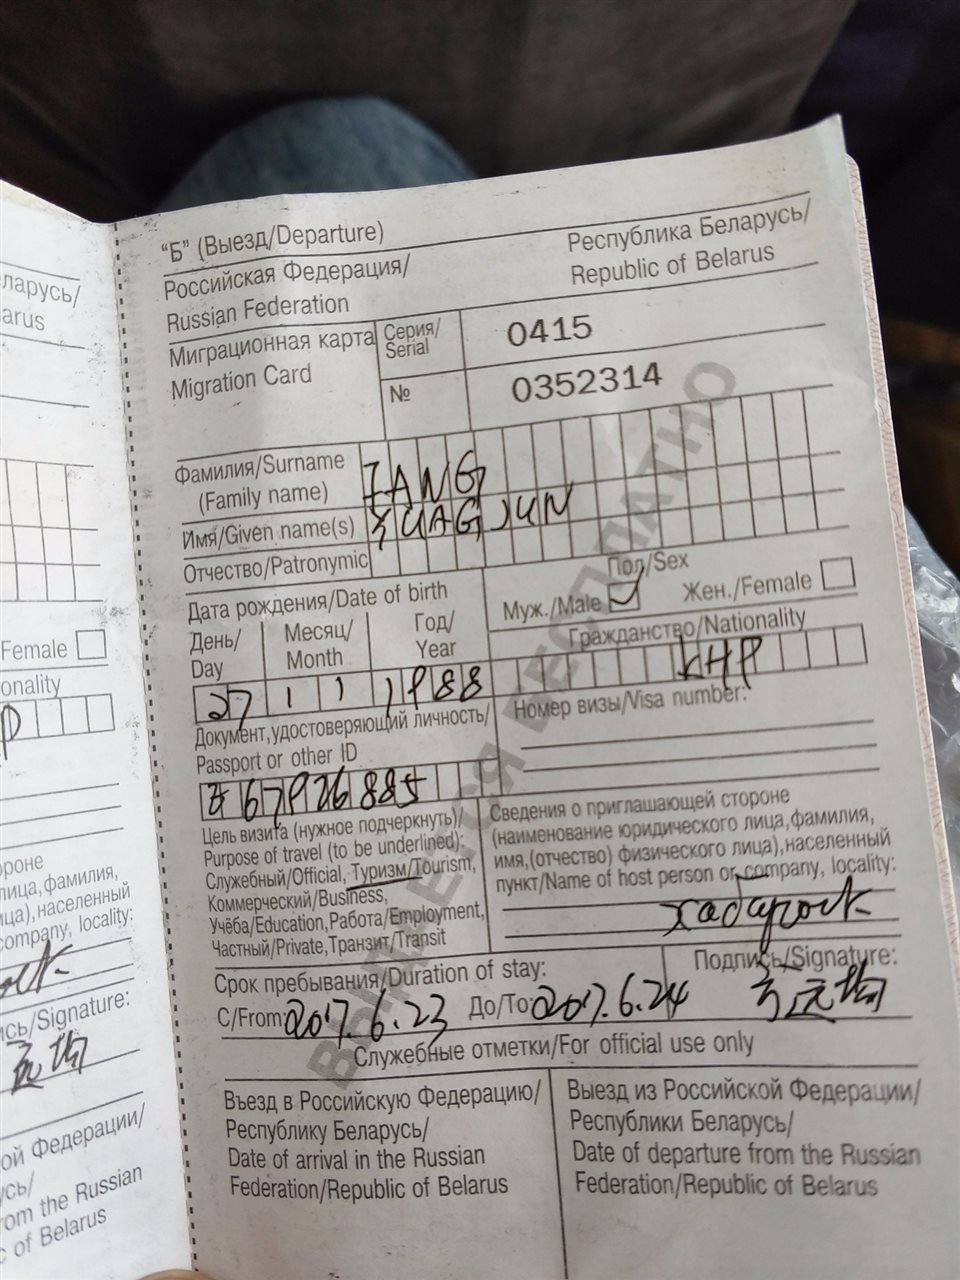 "Б" (Выезд/Departure)
Российская Федерация/
Russian Federation
Республика Беларусь/
Republic of Belarus
Миграционная карта
Migration Card
Серия/
Serial
0415
№
0352314
Фамилия/Surname
(Family name)
Имя/Given name(s)
JUN
Отчество/Patronymic
Дата рождения/Date of birth
День/
Day
Месяц/
Month
Год/
Year
27 1 1 1988
Пол/Sex
Муж./Male
Жен./Female
Гражданство/Nationality
KHP
Документ,удостоверяющий личность/
Passport or other ID
Номер визы/Visa number:
Цель визита (нужное подчеркнуть)/
Purpose of travel (to be underlined):
Служебный/Official, Туризм/Tourism,
Коммерческий/Business,
Учёба/Education,Работа/Employment,
Частный/Private,Транзит/Transit
Сведения о приглашающей стороне
(наименование юридического лица,фамилия,
имя,(отчество) физического лица),населенный
пункт/Name of host person or company, locality:
Срок пребывания/Duration of stay:
С/From: 2017.6.23 До/To: 2017.6.24
Подпись/Signature:
Служебные отметки/For official use only
Въезд в Российскую Федерацию/
Республику Беларусь/
Date of arrival in the Russian
Federation/Republic of Belarus
Выезд из Российской Федерации/
Республики Беларусь/
Date of departure from the Russian
Federation/Republic of Belarus
ВЫДАЕТСЯ БЕСПЛАТНО
ларусь/
arus
Female
onality
ороне
лица,фамилия,
ица),населенный
company, locality:
ись/Signature:
ой Федерации/
усь/
rom the Russian
c of Belarus